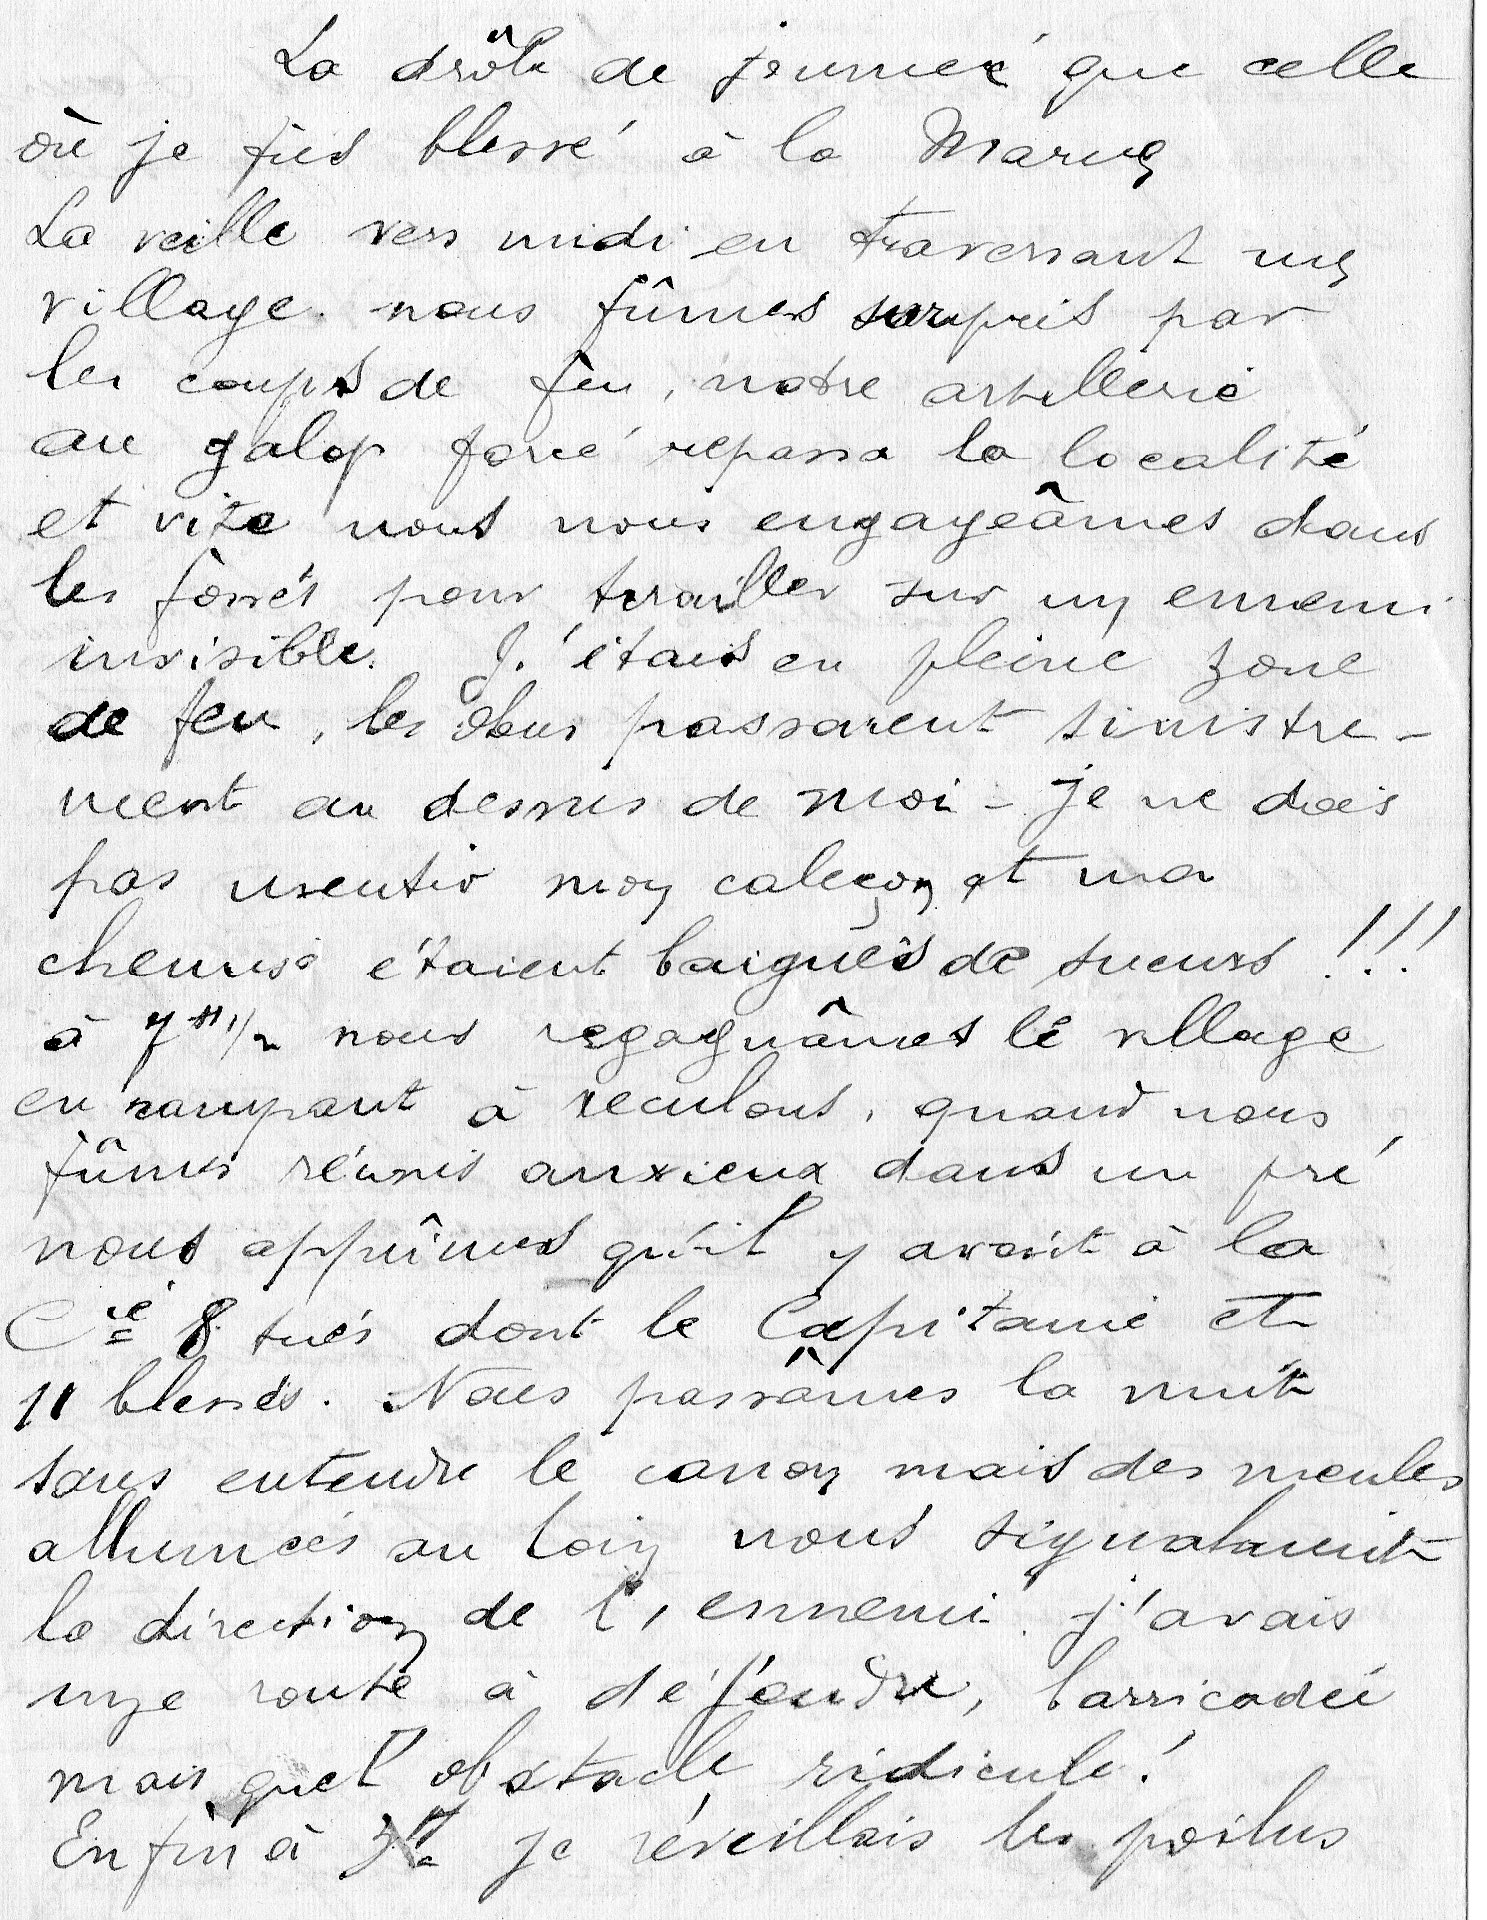 La drôle de journée que celle
où je fus blessé à la Marne
La veille vers midi en traversant un
village. nous fûmes surpris par
les coups de feu, notre artillerie
au galop forcé repassa la localité
et vite nous nous engageâmes dans
les fossés pour tirailler sur un ennemi
invisible. J'étais en pleine zone
de feu, les obus passaient sinistre-
ment au dessus de moi - je ne dois
pas mentir mon caleçon et ma
chemise étaient baignés de sueurs !!!
à 7 H 1/2 nous regagnâmes le village
en rampant à reculons, quand nous
fûmes réunis anxieux dans un pré
nous apprîmes qu'il y avait à la
Cie 8 tués dont le Capitaine et
11 blessés. Nous passâmes la nuit
sans entendre le canon mais des meules
allumées au loin nous signalaient
la direction de l'ennemi. j'avais
une route à défendre, barricadée
mais quel obstacle ridicule !
Enfin à je réveillais les poilus